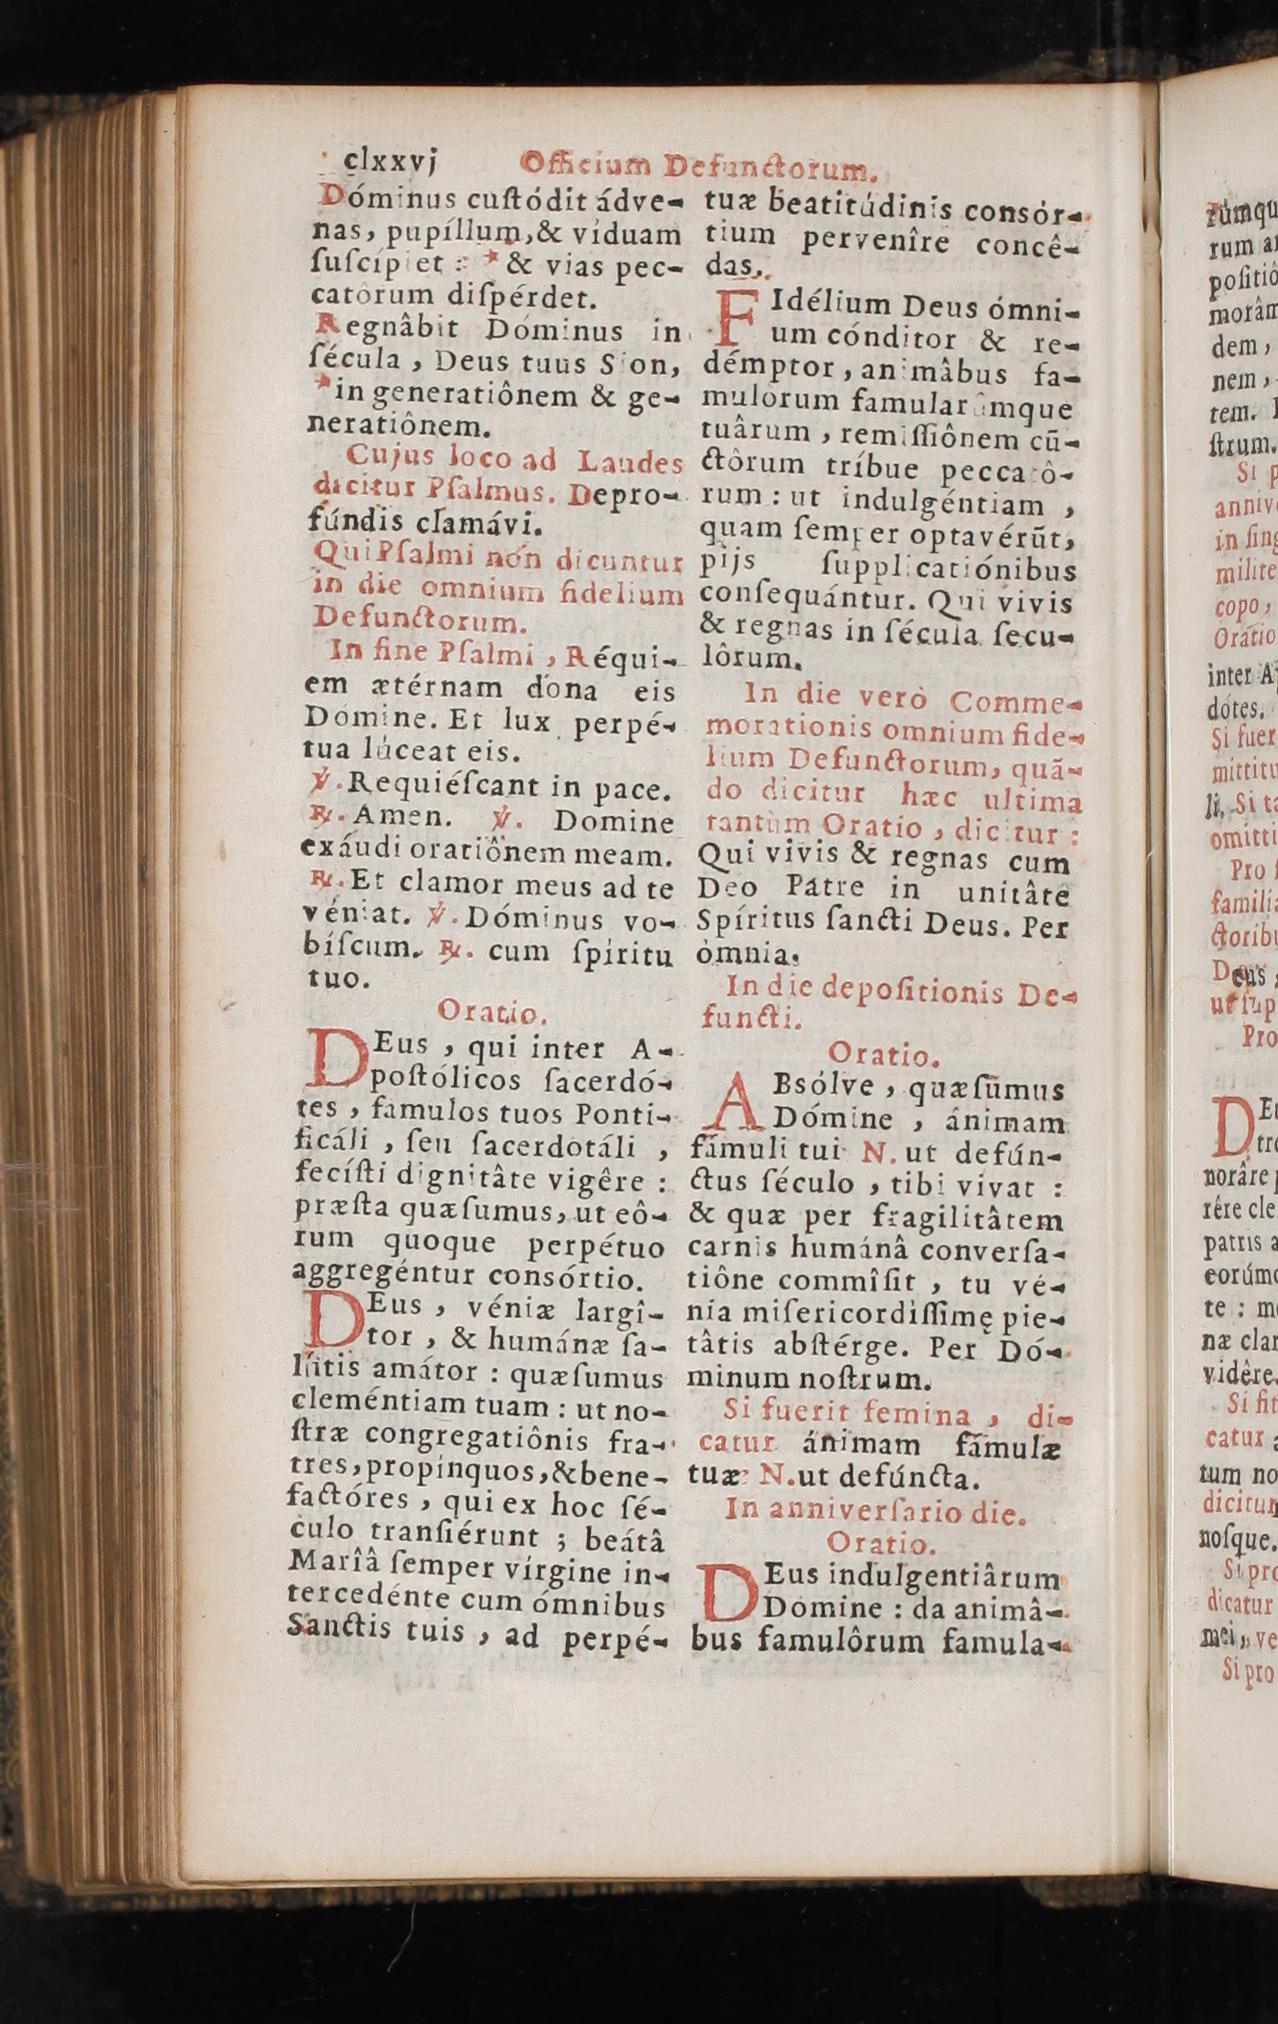 clxxvj Officium Defunctorum.
Dóminus cuſtódit ádve-
nas, pupíllum, & víduam
ſuſcípiet : * & vias pec-
catôrum diſpérdet.
Regnâbit Dóminus in
ſécula, Deus tuus Sion,
* in generatiônem & ge-
neratiônem.
Cujus loco ad Laudes
dicitur Pſalmus. Depro-
fúndis clamávi.
Qui Pſalmi non dicuntur
in die omnium fidelium
Defunctorum.
In fine Pſalmi, Réqui-
em ætérnam dona eis
Domine. Et lux perpé-
tua lúceat eis.
℣. Requiéſcant in pace.
℟. Amen. ℣. Domine
exáudi oratiônem meam.
℟. Et clamor meus ad te
véniat. ℣. Dóminus vo-
bíſcum. ℟. cum ſpíritu
tuo.
Oratio.
DEus, qui inter A-
poſtólicos ſacerdó-
tes, famulos tuos Ponti-
ficáli, ſeu ſacerdotáli,
fecíſti dignitâte vigêre :
præſta quæſumus, ut eô-
rum quoque perpétuo
aggregéntur consórtio.
DEus, véniæ largî-
tor, & humánæ ſa-
lútis amátor : quæſumus
cleméntiam tuam : ut no-
ſtræ congregatiônis fra-
tres, propínquos, & bene-
factóres, qui ex hoc ſé-
culo tranſiérunt ; beátâ
Marîâ ſemper vírgine in-
tercedénte cum ómnibus
Sanctis tuis, ad perpé-
tuæ beatitúdinis consór-
tium pervenîre concê-
das.
FIdélium Deus ómni-
um cónditor & re-
démptor, animâbus fa-
mulorum famularúmque
tuârum, remiſſiônem cū-
ctôrum tríbue peccatô-
rum : ut indulgéntiam,
quam ſemper optavérūt,
pijs ſupplicatiónibus
conſequántur. Qui vivis
& regnas in ſécula ſecu-
lôrum.
In die verò Comme-
morationis omnium fide-
lium Defunctorum, quā-
do dicitur hæc ultima
tantùm Oratio, dicitur :
Qui vivis & regnas cum
Deo Patre in unitâte
Spíritus ſancti Deus. Per
òmnia.
In die depoſitionis De-
functi.
Oratio.
ABsólve, quæſumus
Dómine, ánimam
fámuli tui N. ut defún-
ctus ſéculo, tibi vivat :
& quæ per fragilitâtem
carnis humánâ converſa-
tiône commîſit, tu vé-
nia miſericordiſſimę pie-
tâtis abſtérge. Per Dó-
minum noſtrum.
Si fuerit femina, di-
catur ánimam fámulæ
tuæ N. ut defúncta.
In anniverſario die.
Oratio.
DEus indulgentiârum
Domine : da animâ-
bus famulôrum famula-
rúmqu
rum a
poſitiô
morâm
dem,
nem,
tem.
ſtrum.
Si p
anniv
in ſing
milite
copo,
Oratio
inter A
dótes.
Si fuer
mittitu
li. Si ta
omitti
Pro
familia
ctoribu
Deus,
ut ſup
Pro
DE
tr
norâre
rêre cle
patris a
eorúm
te : m
næ clar
vidêre.
Si ſit
catur a
tum no
dicitur
noſque.
Si pro
dicatur
mei, ve
Si pro